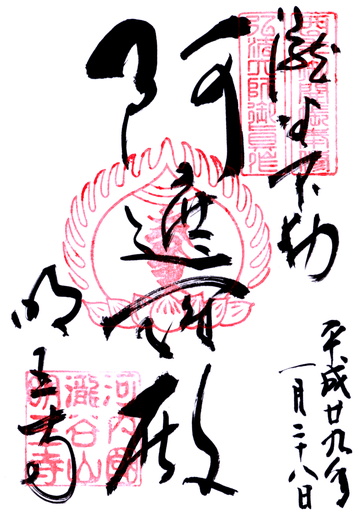 瀧谷不動
阿遮羅殿
明王寺
平成廿九年
一月二十八日
弘法大師御
河内國
瀧谷山
明王寺